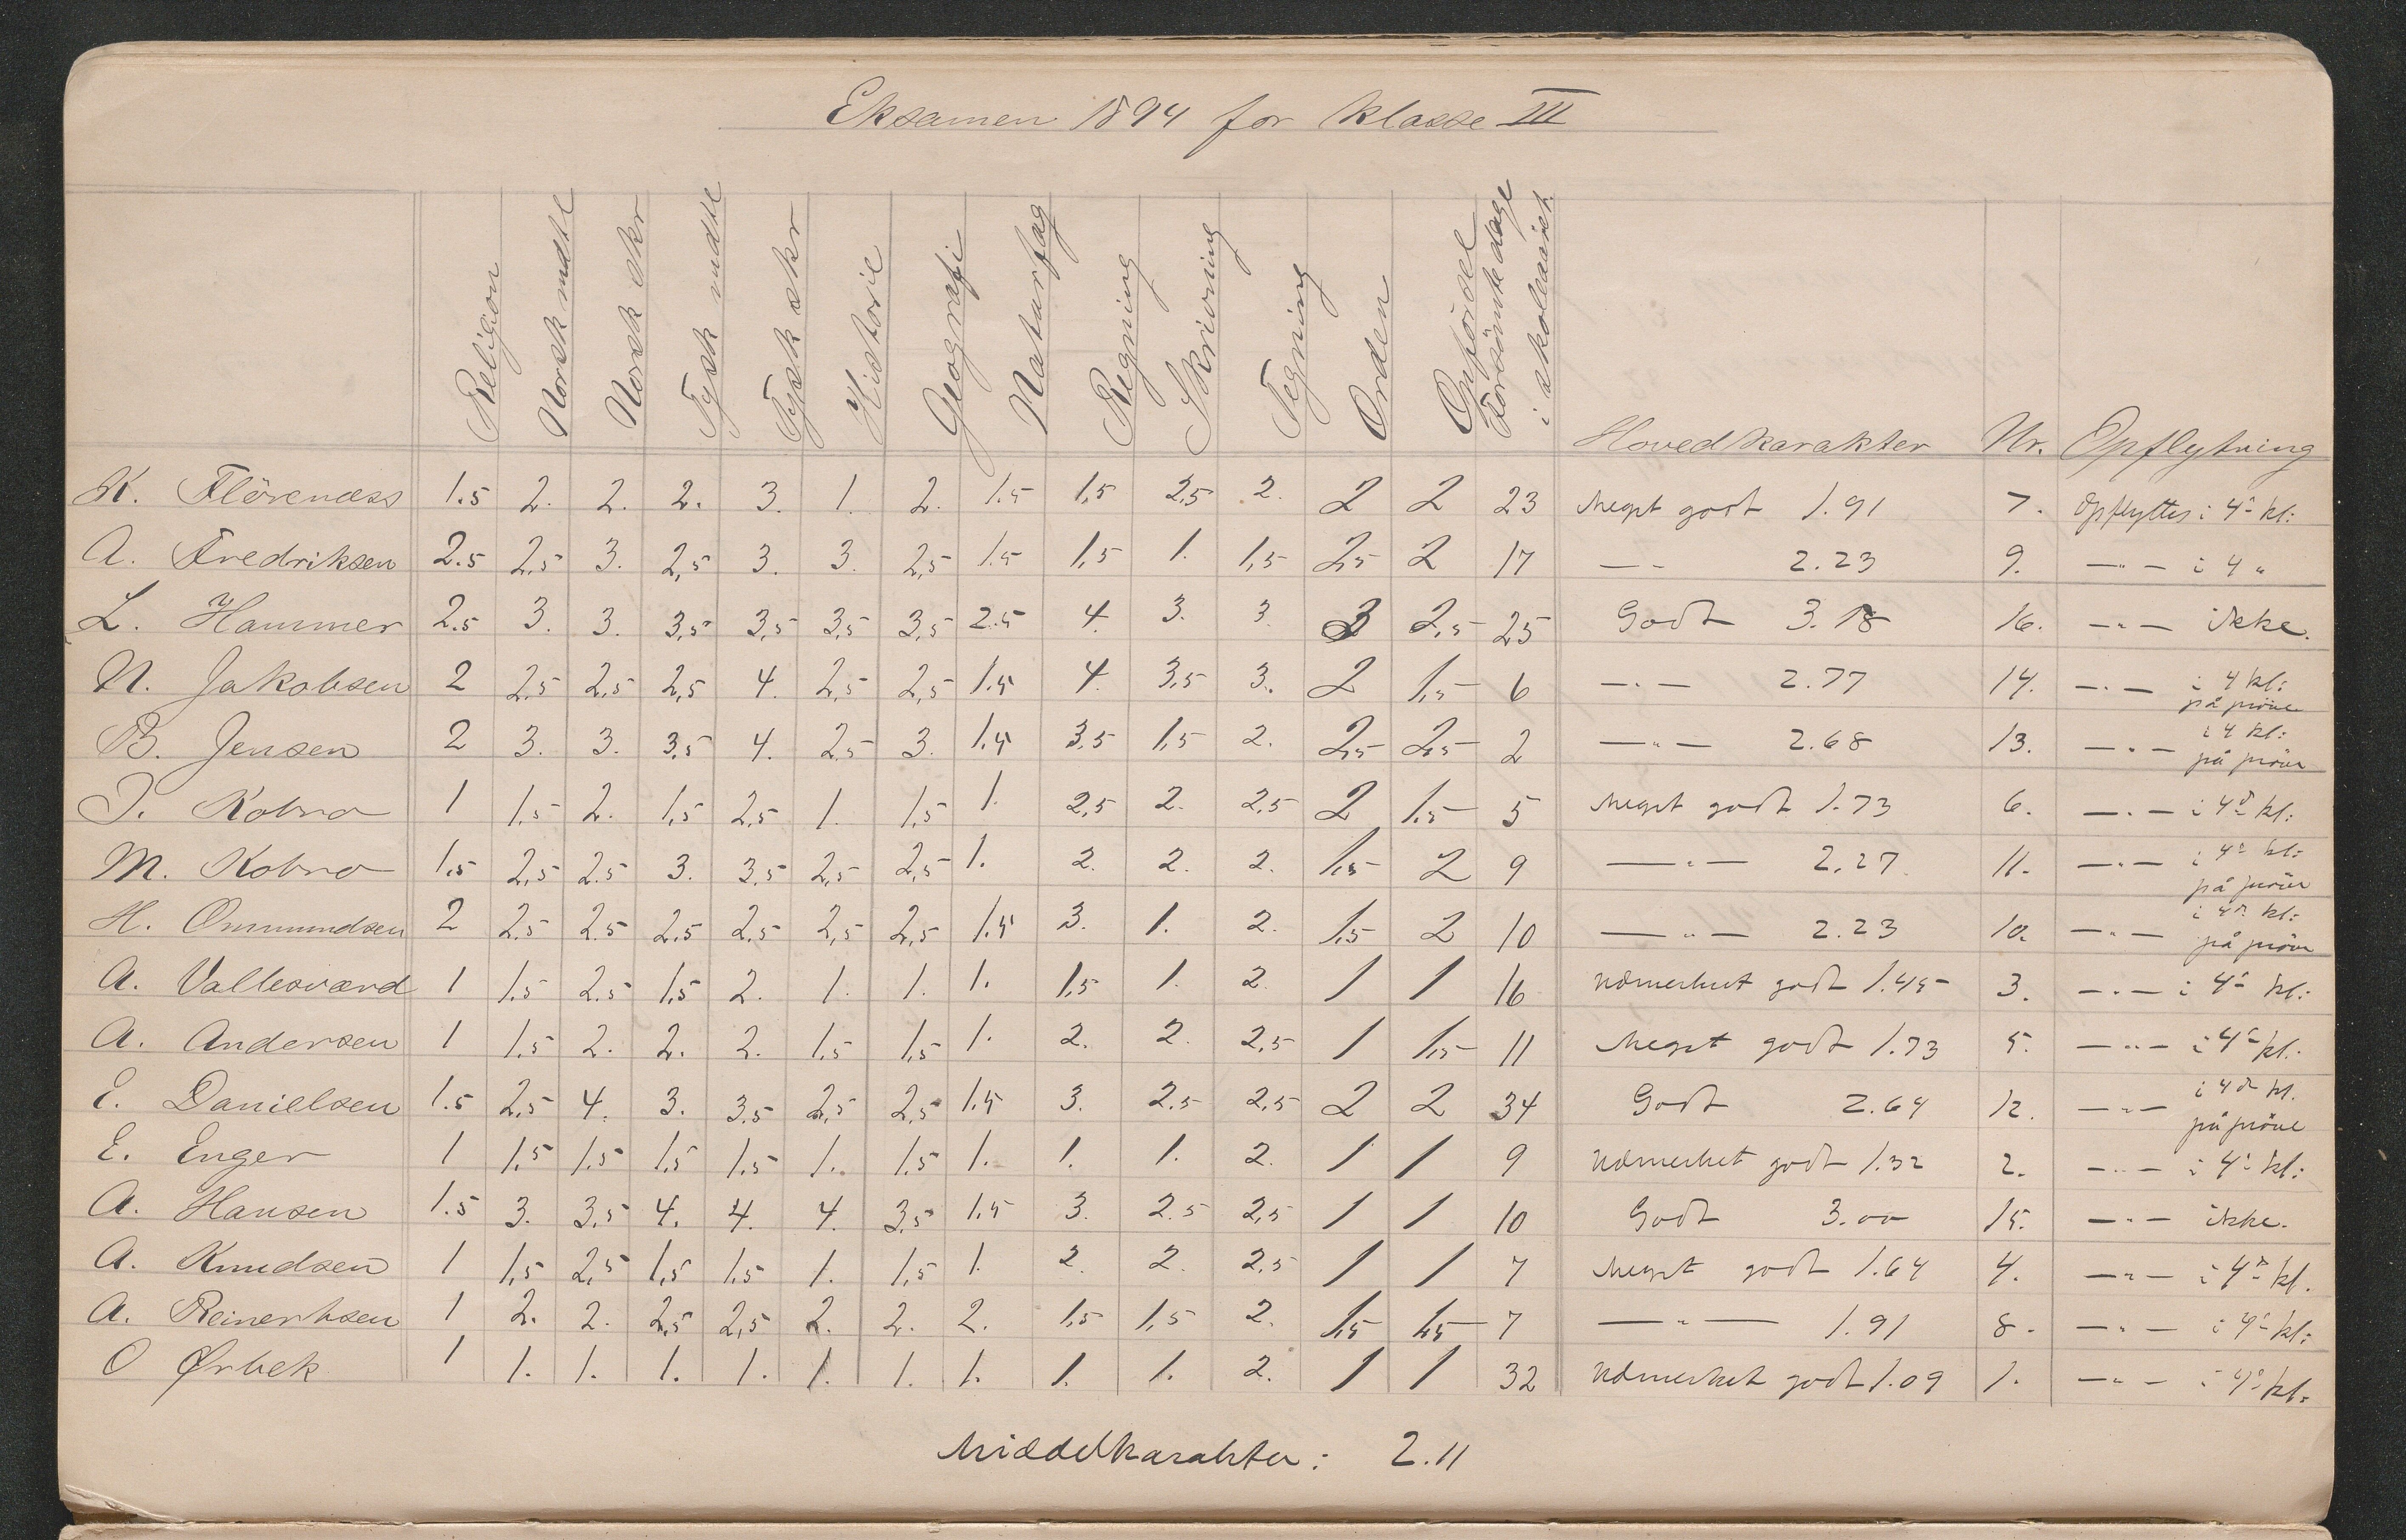 Eksamen 1894 for klasse III
Religion Norsk mdtl Norsk skr Tysk mdtl Tysk skr Historie Geografi Naturfag Regning Skrivning Tegning Orden Opförsel Forsömte dage i skoleaaret. Hovedkarakter Nr. Opflytning
K. Flörenæss 1.5 2. 2. 2. 3. 1. 2. 1.5 1,5 2,5 2. 2 2 23 Meget godt 1.91 7. Opflyttes i 4de kl:
A. Fredriksen 2.5 2,5 3. 2,5 3. 3. 2,5 1.5 1,5 1. 1,5 2,5 2 17 — " — 2.23 9. — " — i 4 "
L. Hammer 2.5 3. 3. 3,5 3,5 3,5 3,5 2.5 4. 3. 3. 3 2,5 25 Godt 3.18 16. — " — ikke.
N. Jakobsen 2 2,5 2,5 2,5 4. 2,5 2,5 1.5 4. 3,5 3. 2 1,5 6 — " — 2.77 14. — " — i 4 kl: på pröve
B. Jensen 2 3. 3. 3,5 4. 2,5 3. 1.5 3,5 1,5 2. 2,5 2,5 2 — " — 2.68 13. — " — i 4 kl: på pröve
J. Kobro 1 1,5 2. 1,5 2,5 1. 1,5 1. 2,5 2. 2,5 2 1,5 5 Meget godt 1.73 6. — " — i 4de kl:
M. Kobro 1.5 2,5 2.5 3. 3,5 2,5 2,5 1. 2. 2. 2. 1,5 2 9 — " — 2.27 11. — " — i 4de kl: på pröve
H. Ommundsen 2 2,5 2.5 2,5 2,5 2,5 2,5 1.5 3. 1. 2. 1,5 2 10 — " — 2.23 10. — " — i 4de kl: på pröve
A. Vallesværd 1 1,5 2.5 1,5 2. 1. 1. 1. 1,5 1. 2. 1 1 16 Udmerket godt 1.45 3. — " — i 4de kl:
A. Andersen 1 1,5 2. 2. 2. 1,5 1,5 1. 2. 2. 2,5 1 1,5 11 Meget godt 1.73 5. — " — i 4de kl:
E. Danielsen 1.5 2,5 4. 3. 3,5 2,5 2,5 1.5 3. 2,5 2,5 2 2 34 Godt 2.64 12. — " — i 4de kl. på pröve
E. Enger 1 1,5 1,5 1,5 1,5 1. 1,5 1. 1. 1. 2. 1 1 9 Udmerket godt 1.32 2. — " — i 4de kl:
A. Hansen 1.5 3. 3,5 4. 4. 4. 3,5 1.5 3. 2.5 2,5 1 1 10 Godt 3.00 15. — " — ikke.
A. Knudsen 1 1,5 2,5 1,5 1,5 1. 1,5 1. 2. 2. 2,5 1 1 7 Meget godt 1.64 4. — " — i 4de kl.
A. Reinertsen 1 2. 2. 2,5 2,5 2. 2. 2. 1,5 1,5 2. 1,5 1,5 7 — " — 1.91 8. — " — i 4de kl:
O Ørbek 1 1. 1. 1. 1. 1. 1. 1. 1. 1. 2. 1 1 32 Udmerket godt 1.09 1. — " — i 4de kl:
Middelkarakter: 2.11